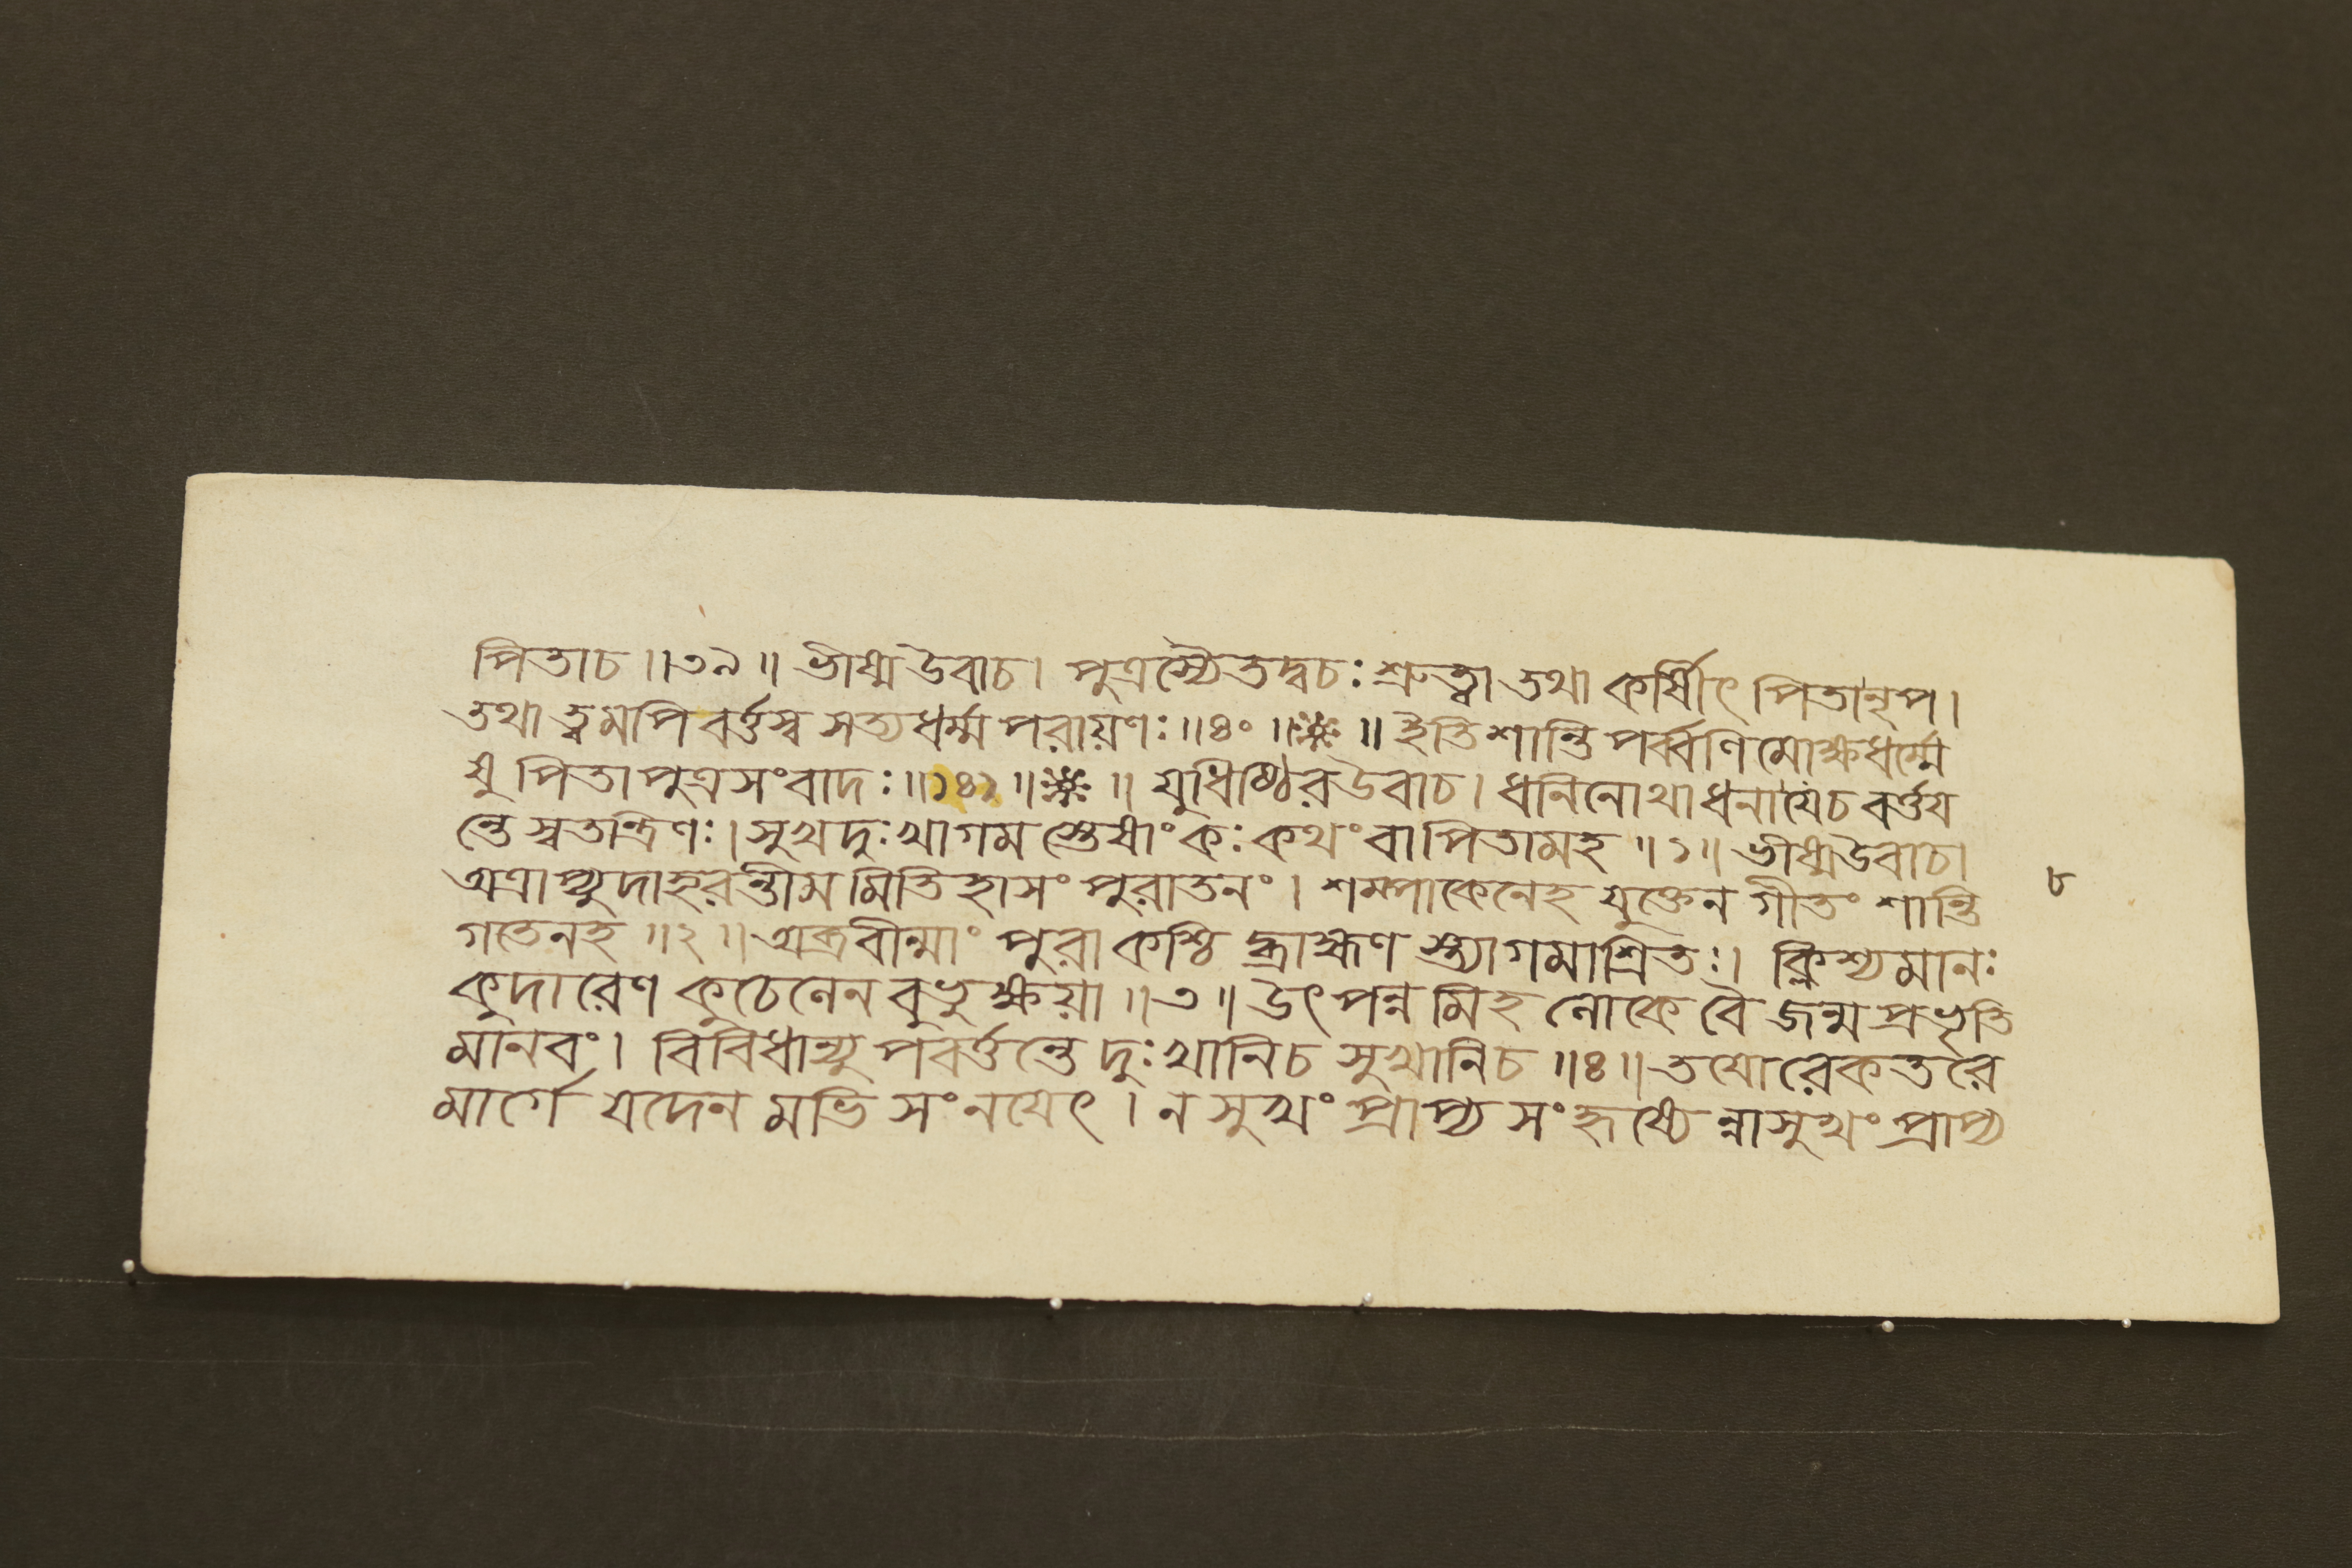 পিতাচ ॥৩৯॥ ভীষ্মউবাচ। পুত্রস্যৈতদ্বচঃ শ্রুত্বা তথা কর্ষীৎ পিতানৃপ।
তথা ত্বমপি বর্ত্তস্ব সত্যধর্ম্ম পরায়ণঃ ॥৪০॥❋॥ ইতি শান্তি পর্ব্বণি মোক্ষধর্ম্মে
ষু পিতাপুত্রসংবাদঃ ॥১৪১॥❋॥ যুধিষ্ঠিরউবাচ। ধনিনোথাধনাযেচ বর্ত্তয
ন্তে স্বতন্ত্রিণঃ। সুখদুঃখাগমস্তেষাংকঃ কথংবাপিতামহ ॥১॥ ভীষ্মউবাচ।
অত্রাপ্যুদাহরন্তীম মিতিহাসং পুরাতনং। শম্পাকেনেহ যুক্তেন গীতং শান্তি
৮
গতেনহ ॥২॥ অব্রবীন্মাং পুরা কশ্চি দ্ব্রাহ্মণ স্ত্যাগমাশ্রিতঃ। ক্লিশ্যমানঃ
কুদারেণ কুচেলেন বুভুক্ষয়া ॥৩॥ উৎপন্ন মিহ লোকে বৈ জন্ম প্রভৃতি
মানবং। বিবিধান্যু পবর্ত্তন্তে দুঃখানিচ সুখানিচ ॥৪॥ তযোরেকতরে
মার্গে যদেন মভি সংনযেৎ। ন সুখং প্রাপ্য সংহৃষ্যে ন্নাসুখং প্রাপ্য